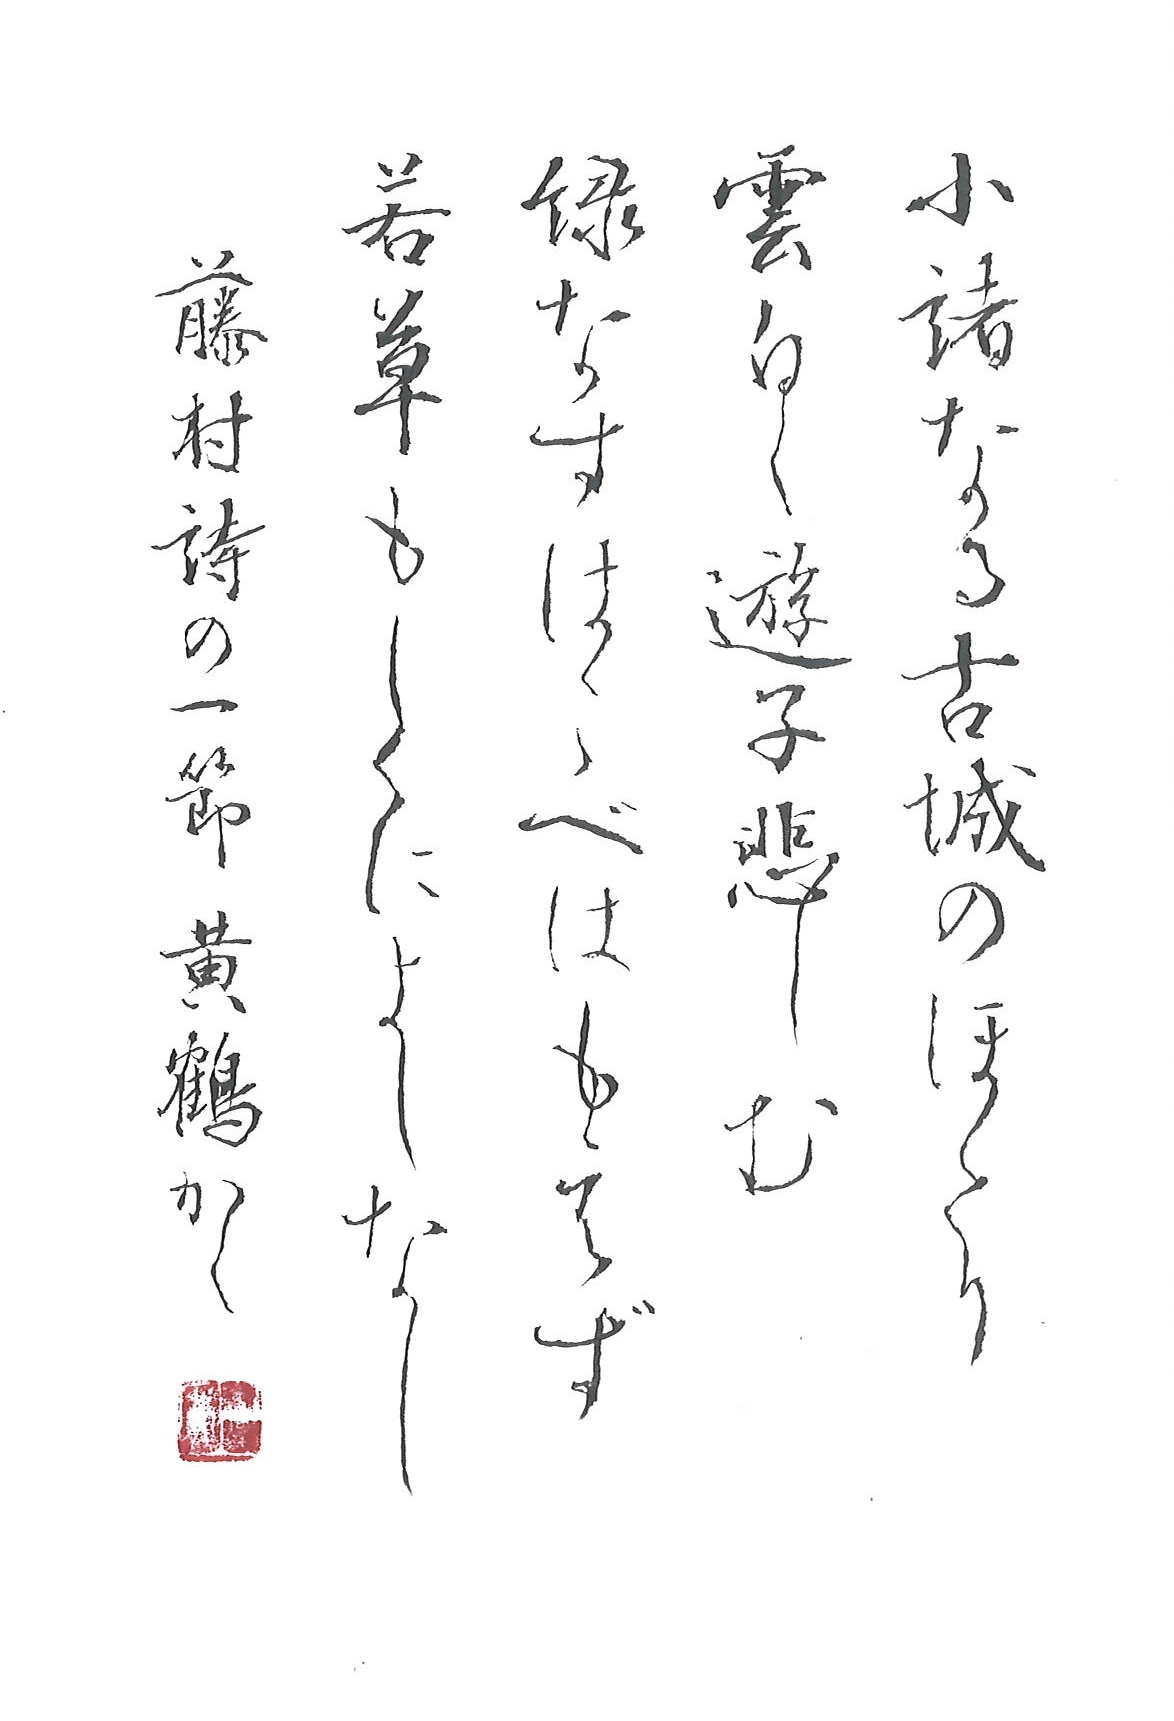 小諸なる古城のほとり
雲白く遊子悲しむ
緑なすはこべはもえず
若草もしくによしなし
藤村詩の一節 黄鶴かく